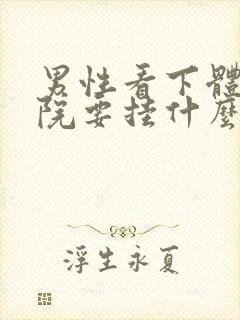 男性看下體
院要挂什麼
浮生永夏